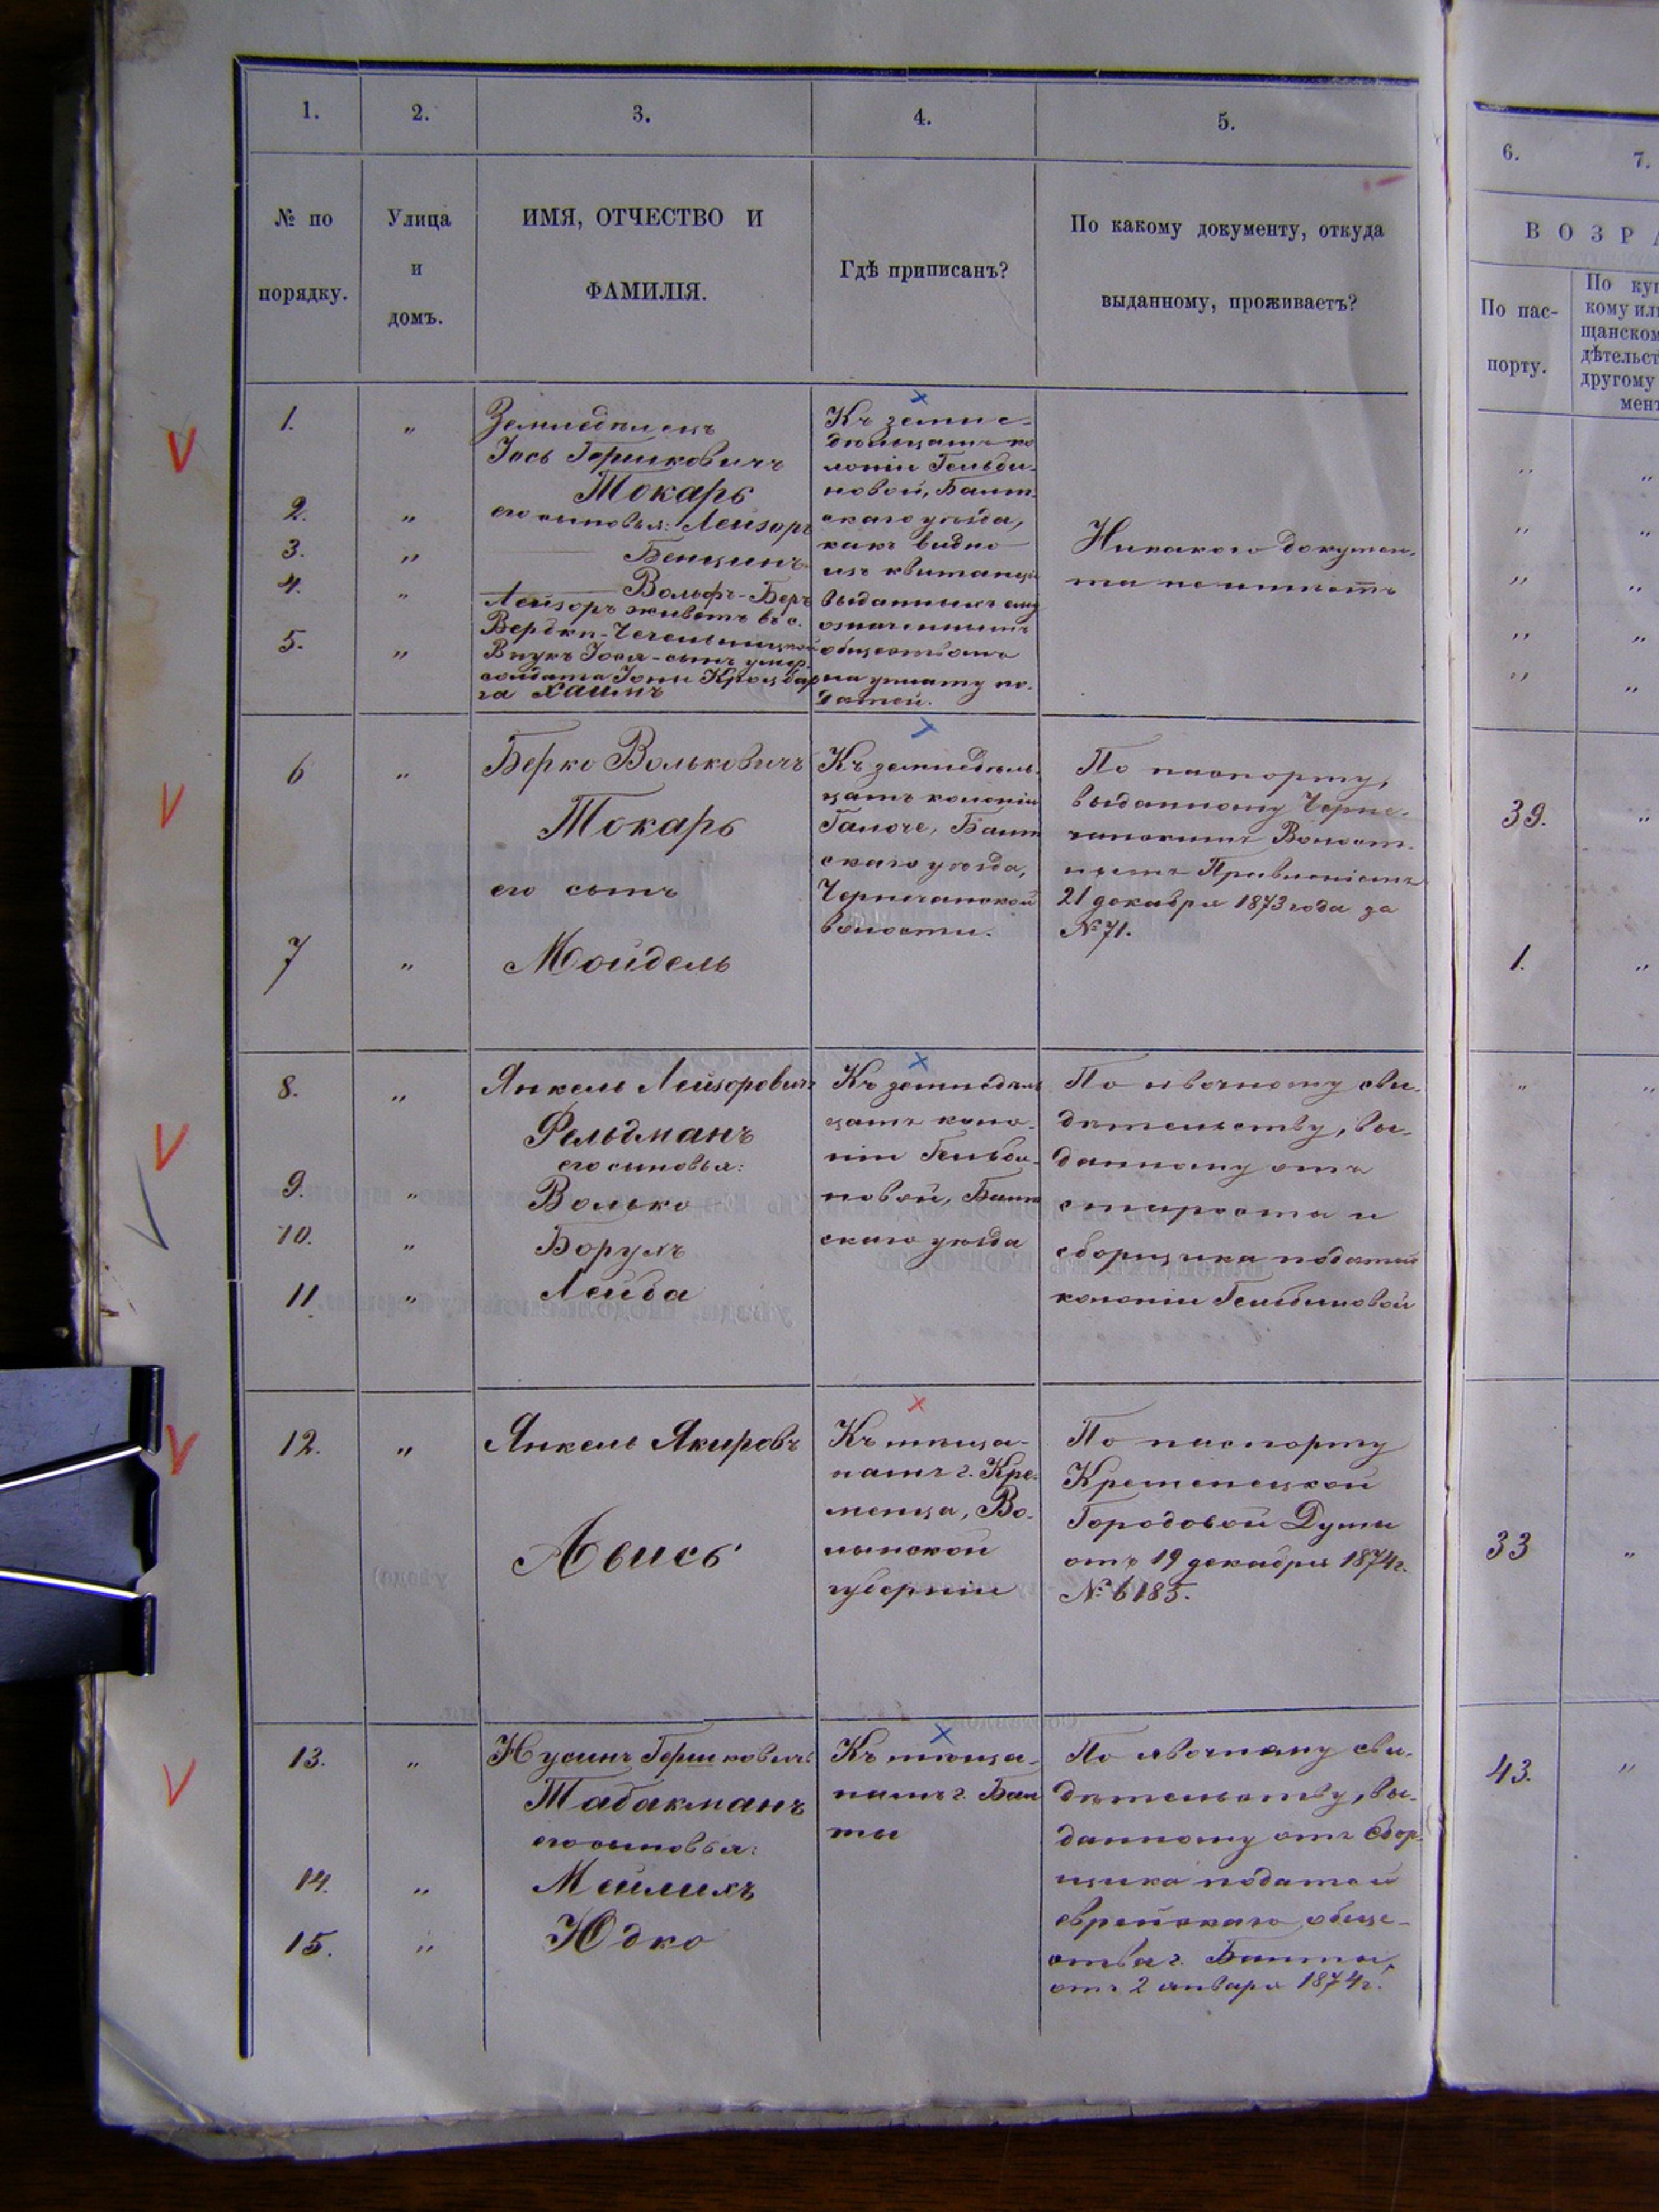 1. 2. 3. 4. 5.
№ по порядку.
Улица и домъ.
ИМЯ, ОТЧЕСТВО И ФАМИЛІЯ.
Гдѣ приписанъ?
По какому документу, откуда выданному, проживаетъ?
6. 7.
ВОЗРА
По пас-
порту.
По куп
кому или
щанском
дѣтельст
другому
мент
1. „
Земледѣлецъ
Іось Гершковичъ
Токарь
2. „ его сыновья: Лейзоръ
3. „ Бенцинъ
4. „ Вольфъ-Беръ
Лейзоръ живетъ въ с.
Вербкѣ-Чечельницкой
5. „ Внукъ Іося-сынъ умер.
солдата Іони
га Хаимъ
Къ земле-
дѣльцамъ ко
лоніи Гельби-
новой, Балт-
скаго уѣзда,
какъ видно
изъ квитанцій
выданныхъ ему
означеннымъ
обществомъ
на уплату по-
датей.
Никакого докумен-
та не имѣетъ
6 „ Берко Вольковичъ
Токарь
его сынъ
7 „ Мойдель
Къ земледѣль-
цамъ колоніи
Балт
скаго уѣзда,
волости.
По паспорту,
выданному Черне-
чанскимъ Волост-
нымъ Правленіемъ
21 декабря 1873 года за
№ 71.
39. „
1. „
8. „ Янкель Лейзоровичъ
Фельдманъ
его сыновья:
9. „ Волько
10. „ Борухъ
11 „ Лейба
Къ земледѣль
цамъ коло-
ніи Гельби-
новой, Балт
скаго уѣзда
По явочному сви-
дѣтельству, вы-
данному отъ
староста и
сборщика податей
колоніи Гельбиновой
12. „ Янкель Якировъ
Авись
Къ мѣща-
намъ г. Кре-
менца, Во-
лынской
губерніи
По паспорту
Кременецкой
Городовой Думы
отъ 19 декабря 1874 г.
№ 6185.
33 „
13. „ Нусинъ Гершковичъ
Табакманъ
его сыновья:
14. „ Мейлихъ
15. „ Юдко
Къ мѣща-
намъ г. Бал
ты
По явочному сви-
дѣтельству, вы-
данному отъ сбор-
щика податей
еврейскаго обще-
ства г. Балты,
отъ 2 января 1874 г.
43. „